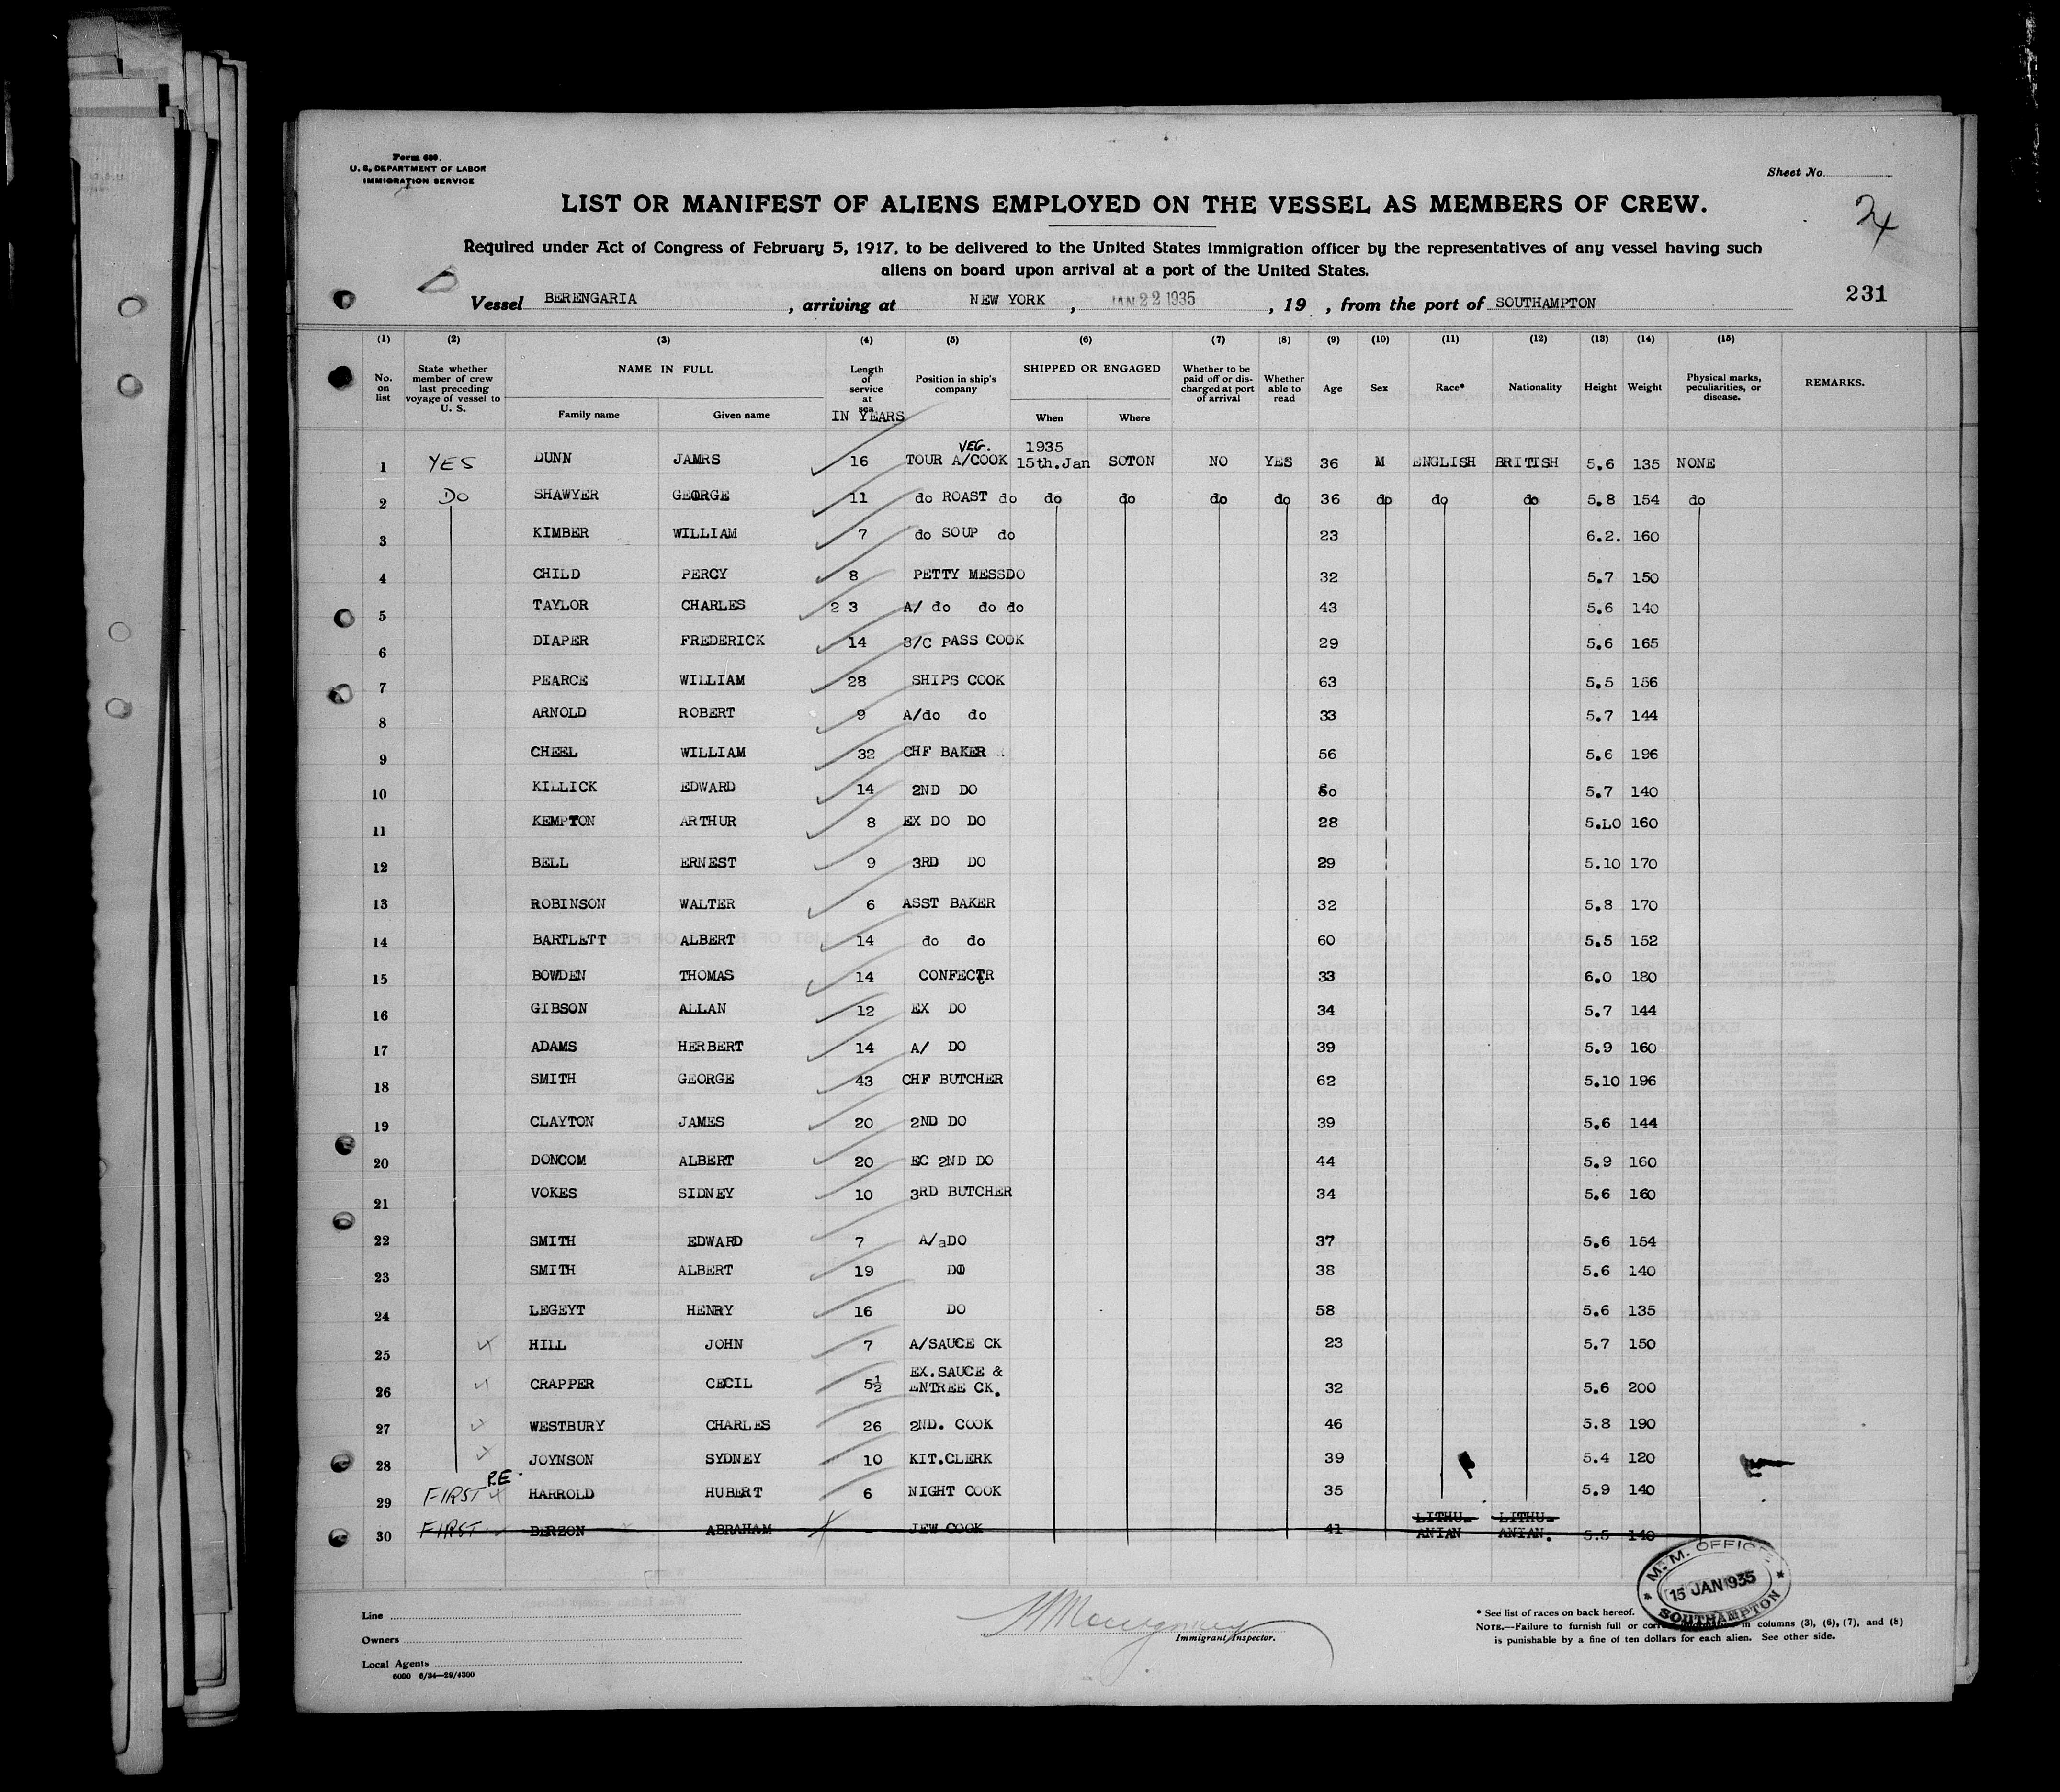 Form 680.
U. S. DEPARTMENT OF LABOR
IMMIGRATION SERVICE
Sheet No.
LIST OR MANIFEST OF ALIENS EMPLOYED ON THE VESSEL AS MEMBERS OF CREW.
Required under Act of Congress of February 5, 1917, to be delivered to the United States immigration officer by the representatives of any vessel having such
aliens on board upon arrival at a port of the United States.
Vessel BERENGARIA, arriving at NEW YORK, JAN 22 1935, 19 , from the port of SOUTHAMPTON
231
(1) (2) (3) (4) (5) (6) (7) (8) (9) (10) (11) (12) (13) (14) (15)
No. on list
State whether member of crew last preceding voyage of vessel to U. S.
NAME IN FULL
Family name Given name
Length of service at sea
IN YEARS
Position in ship's company
SHIPPED OR ENGAGED
When Where
Whether to be paid off or discharged at port of arrival
Whether able to read
Age
Sex
Race*
Nationality
Height
Weight
Physical marks, peculiarities, or disease.
REMARKS.
VEG. 1935
1 YES DUNN JAMRS 16 TOUR A/COOK 15th.Jan SOTON NO YES 36 M ENGLISH BRITISH 5.6 135 NONE
2 Do SHAWYER GEORGE 11 do ROAST do do do do do 36 do do do 5.8 154 do
3 KIMBER WILLIAM 7 do SOUP do 23 6.2. 160
4 CHILD PERCY 8 PETTY MESSDO 32 5.7 150
5 TAYLOR CHARLES 2 3 A/ do do do 43 5.6 140
6 DIAPER FREDERICK 14 S/C PASS COOK 29 5.6 165
7 PEARCE WILLIAM 28 SHIPS COOK 63 5.5 156
8 ARNOLD ROBERT 9 A/do do 33 5.7 144
9 CHEEL WILLIAM 32 CHF BAKER 56 5.6 196
10 KILLICK EDWARD 14 2ND DO 5.7 140
11 KEMPTON ARTHUR 8 EX DO DO 28 5.LO 160
12 BELL ERNEST 9 3RD DO 29 5.10 170
13 ROBINSON WALTER 6 ASST BAKER 32 5.8 170
14 BARTLETT ALBERT 14 do do 60 5.5 152
15 BOWDEN THOMAS 14 CONFECTR 33 6.0 180
16 GIBSON ALLAN 12 EX DO 34 5.7 144
17 ADAMS HERBERT 14 A/ DO 39 5.9 160
18 SMITH GEORGE 43 CHF BUTCHER 62 5.10 196
19 CLAYTON JAMES 20 2ND DO 39 5.6 144
20 DONCOM ALBERT 20 EC 2ND DO 44 5.9 160
21 VOKES SIDNEY 10 3RD BUTCHER 34 5.6 160
22 SMITH EDWARD 7 A/aDO 37 5.6 154
23 SMITH ALBERT 19 DO 38 5.6 140
24 LEGEYT HENRY 16 DO 58 5.6 135
25 HILL JOHN 7 A/SAUCE CK 23 5.7 150
EX.SAUCE &
26 CRAPPER CECIL 5½ ENTREE CK. 32 5.6 200
27 WESTBURY CHARLES 26 2ND. COOK 46 5.8 190
28 JOYNSON SYDNEY 10 KIT.CLERK 39 5.4 120
P.E.
29 FIRST HARROLD HUBERT 6 NIGHT COOK 35 5.9 140
LITHU- LITHU-
30 FIRST BERZON ABRAHAM - JEW COOK 41 ANIAN ANIAN. 5.5 140
M. M. OFFICE
15 JAN 1935
SOUTHAMPTON
Line
Owners
Local Agents
6000 6/34—29/4300
Immigrant Inspector.
* See list of races on back hereof.
NOTE.—Failure to furnish full or in columns (3), (6), (7), and (8)
is punishable by a fine of ten dollars for each alien. See other side.